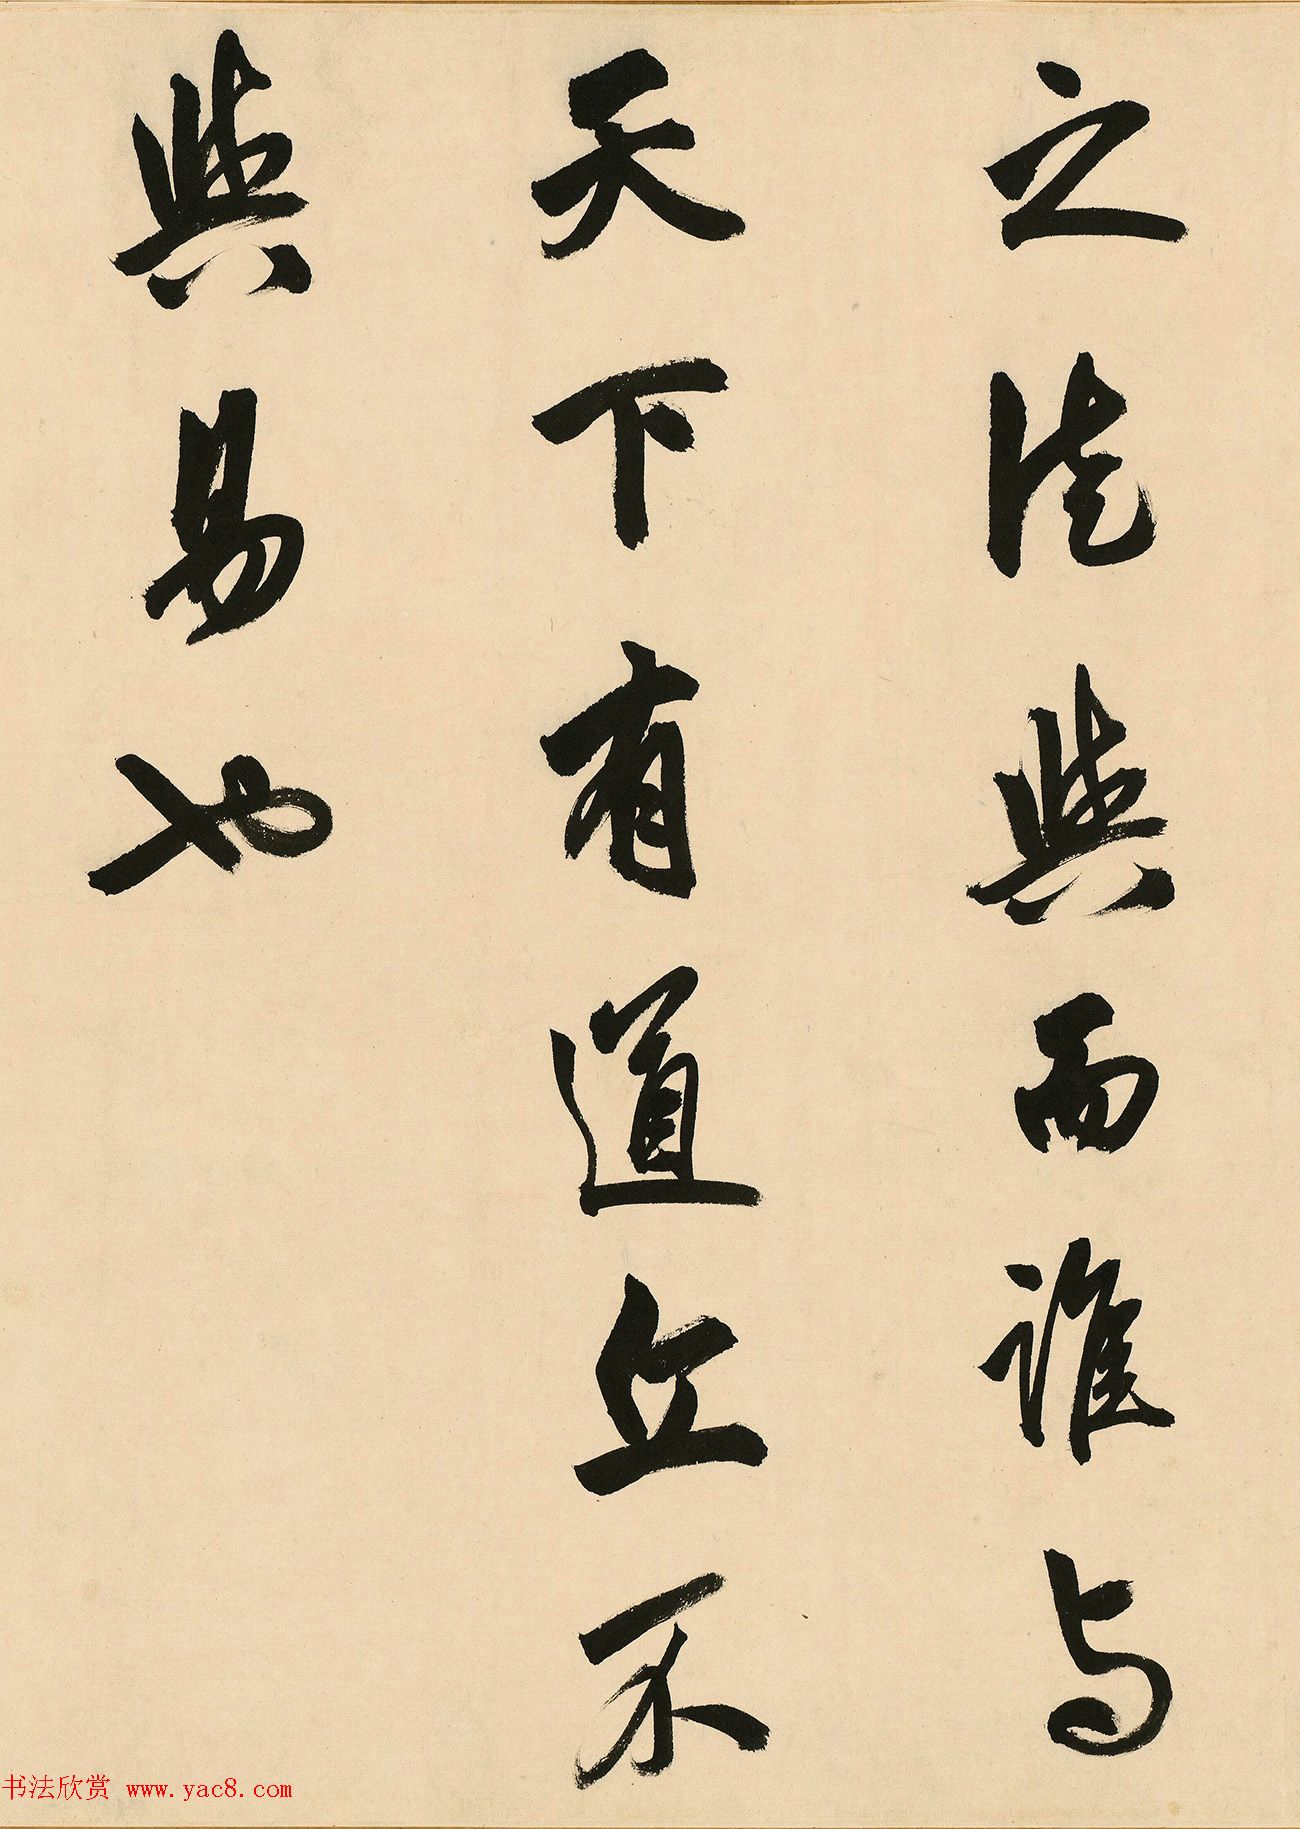 之徒與而誰与
天下有道丘不
與易也
书法欣赏 www.yac8.com